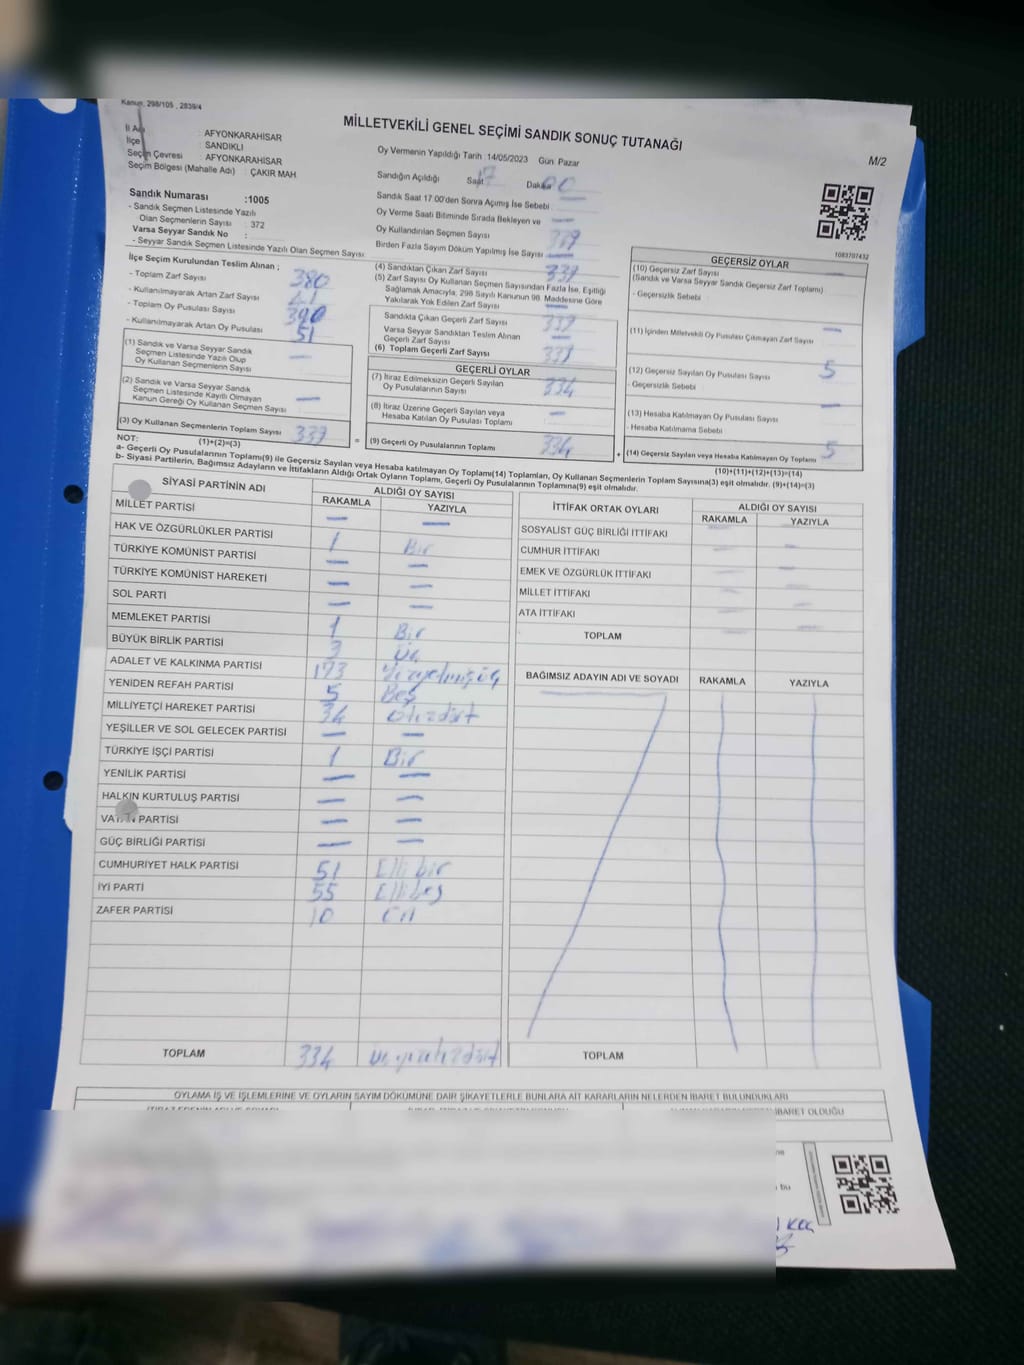 Kanun, 298/105 , 2839/4
MİLLETVEKİLİ GENEL SEÇİMİ SANDIK SONUÇ TUTANAĞI
M/2
İl Adı : AFYONKARAHİSAR
İlçe : SANDIKLI
Seçim Çevresi : AFYONKARAHİSAR
Seçim Bölgesi (Mahalle Adı) : ÇAKIR MAH
Oy Vermenin Yapıldığı Tarih :14/05/2023 Gün: Pazar
Sandığın Açıldığı Saat 17 Dakika 00
Sandık Saat 17:00'den Sonra Açılmış İse Sebebi :
Oy Verme Saati Bitiminde Sırada Bekleyen ve —
Oy Kullandırılan Seçmen Sayısı 339
Birden Fazla Sayım Döküm Yapılmış İse Sayısı —
Sandık Numarası :1005
- Sandık Seçmen Listesinde Yazılı
Olan Seçmenlerin Sayısı : 372
Varsa Seyyar Sandık No :
- Seyyar Sandık Seçmen Listesinde Yazılı Olan Seçmen Sayısı
1083707432
İlçe Seçim Kurulundan Teslim Alınan ;
- Toplam Zarf Sayısı 380
- Kullanılmayarak Artan Zarf Sayısı 41
- Toplam Oy Pusulası Sayısı 390
- Kullanılmayarak Artan Oy Pusulası 51
(1) Sandık ve Varsa Seyyar Sandık
Seçmen Listesinde Yazılı Olup —
Oy Kullanan Seçmenlerin Sayısı
(2) Sandık ve Varsa Seyyar Sandık
Seçmen Listesinde Kayıtlı Olmayan —
Kanun Gereği Oy Kullanan Seçmen Sayısı
(3) Oy Kullanan Seçmenlerin Toplam Sayısı 339
(1)+(2)=(3)
(4) Sandıktan Çıkan Zarf Sayısı 339
(5) Zarf Sayısı Oy Kullanan Seçmen Sayısından Fazla İse, Eşitliği
Sağlamak Amacıyla, 298 Sayılı Kanunun 98. Maddesine Göre
Yakılarak Yok Edilen Zarf Sayısı —
Sandıkta Çıkan Geçerli Zarf Sayısı 339
Varsa Seyyar Sandıktan Teslim Alınan
Geçerli Zarf Sayısı —
(6) Toplam Geçerli Zarf Sayısı 339
GEÇERLİ OYLAR
(7) İtiraz Edilmeksizin Geçerli Sayılan
Oy Pusulalarının Sayısı 334
(8) İtiraz Üzerine Geçerli Sayılan veya
Hesaba Katılan Oy Pusulası Toplamı —
= (9) Geçerli Oy Pusulalarının Toplamı 334
GEÇERSİZ OYLAR
(10) Geçersiz Zarf Sayısı —
(Sandık ve Varsa Seyyar Sandık Geçersiz Zarf Toplamı)
- Geçersizlik Sebebi
(11) İçinden Milletvekili Oy Pusulası Çıkmayan Zarf Sayısı —
(12) Geçersiz Sayılan Oy Pusulası Sayısı 5
- Geçersizlik Sebebi
(13) Hesaba Katılmayan Oy Pusulası Sayısı —
- Hesaba Katılmama Sebebi
+ (14) Geçersiz Sayılan veya Hesaba Katılmayan Oy Toplamı 5
(10)+(11)+(12)+(13)=(14)
NOT:
a- Geçerli Oy Pusulalarının Toplamı(9) ile Geçersiz Sayılan veya Hesaba katılmayan Oy Toplamı(14) Toplamları, Oy Kullanan Seçmenlerin Toplam Sayısına(3) eşit olmalıdır. (9)+(14)=(3)
b- Siyasi Partilerin, Bağımsız Adayların ve İttifakların Aldığı Ortak Oyların Toplamı, Geçerli Oy Pusulalarının Toplamına(9) eşit olmalıdır.
SİYASİ PARTİNİN ADI ALDIĞI OY SAYISI
RAKAMLA YAZIYLA
MİLLET PARTİSİ — —
HAK VE ÖZGÜRLÜKLER PARTİSİ 1 Bir
TÜRKİYE KOMÜNİST PARTİSİ — —
TÜRKİYE KOMÜNİST HAREKETİ — —
SOL PARTİ — —
MEMLEKET PARTİSİ 1 Bir
BÜYÜK BİRLİK PARTİSİ 3 Üç
ADALET VE KALKINMA PARTİSİ 173 Yüzyetmişüç
YENİDEN REFAH PARTİSİ 5 Beş
MİLLİYETÇİ HAREKET PARTİSİ 34 Otuzdört
YEŞİLLER VE SOL GELECEK PARTİSİ — —
TÜRKİYE İŞÇİ PARTİSİ 1 Bir
YENİLİK PARTİSİ — —
HALKIN KURTULUŞ PARTİSİ — —
VATAN PARTİSİ — —
GÜÇ BİRLİĞİ PARTİSİ — —
CUMHURİYET HALK PARTİSİ 51 Ellibir
İYİ PARTİ 55 Ellibeş
ZAFER PARTİSİ 10 On
TOPLAM 334 üçyüzotuzdört
İTTİFAK ORTAK OYLARI ALDIĞI OY SAYISI
RAKAMLA YAZIYLA
SOSYALİST GÜÇ BİRLİĞİ İTTİFAKI — —
CUMHUR İTTİFAKI — —
EMEK VE ÖZGÜRLÜK İTTİFAKI — —
MİLLET İTTİFAKI — —
ATA İTTİFAKI — —
TOPLAM — —
BAĞIMSIZ ADAYIN ADI VE SOYADI RAKAMLA YAZIYLA
TOPLAM
OYLAMA İŞ VE İŞLEMLERİNE VE OYLARIN SAYIM DÖKÜMÜNE DAİR ŞİKAYETLERLE BUNLARA AİT KARARLARIN NELERDEN İBARET BULUNDUKLARI
İBARET OLDUĞU
bu
KOÇ